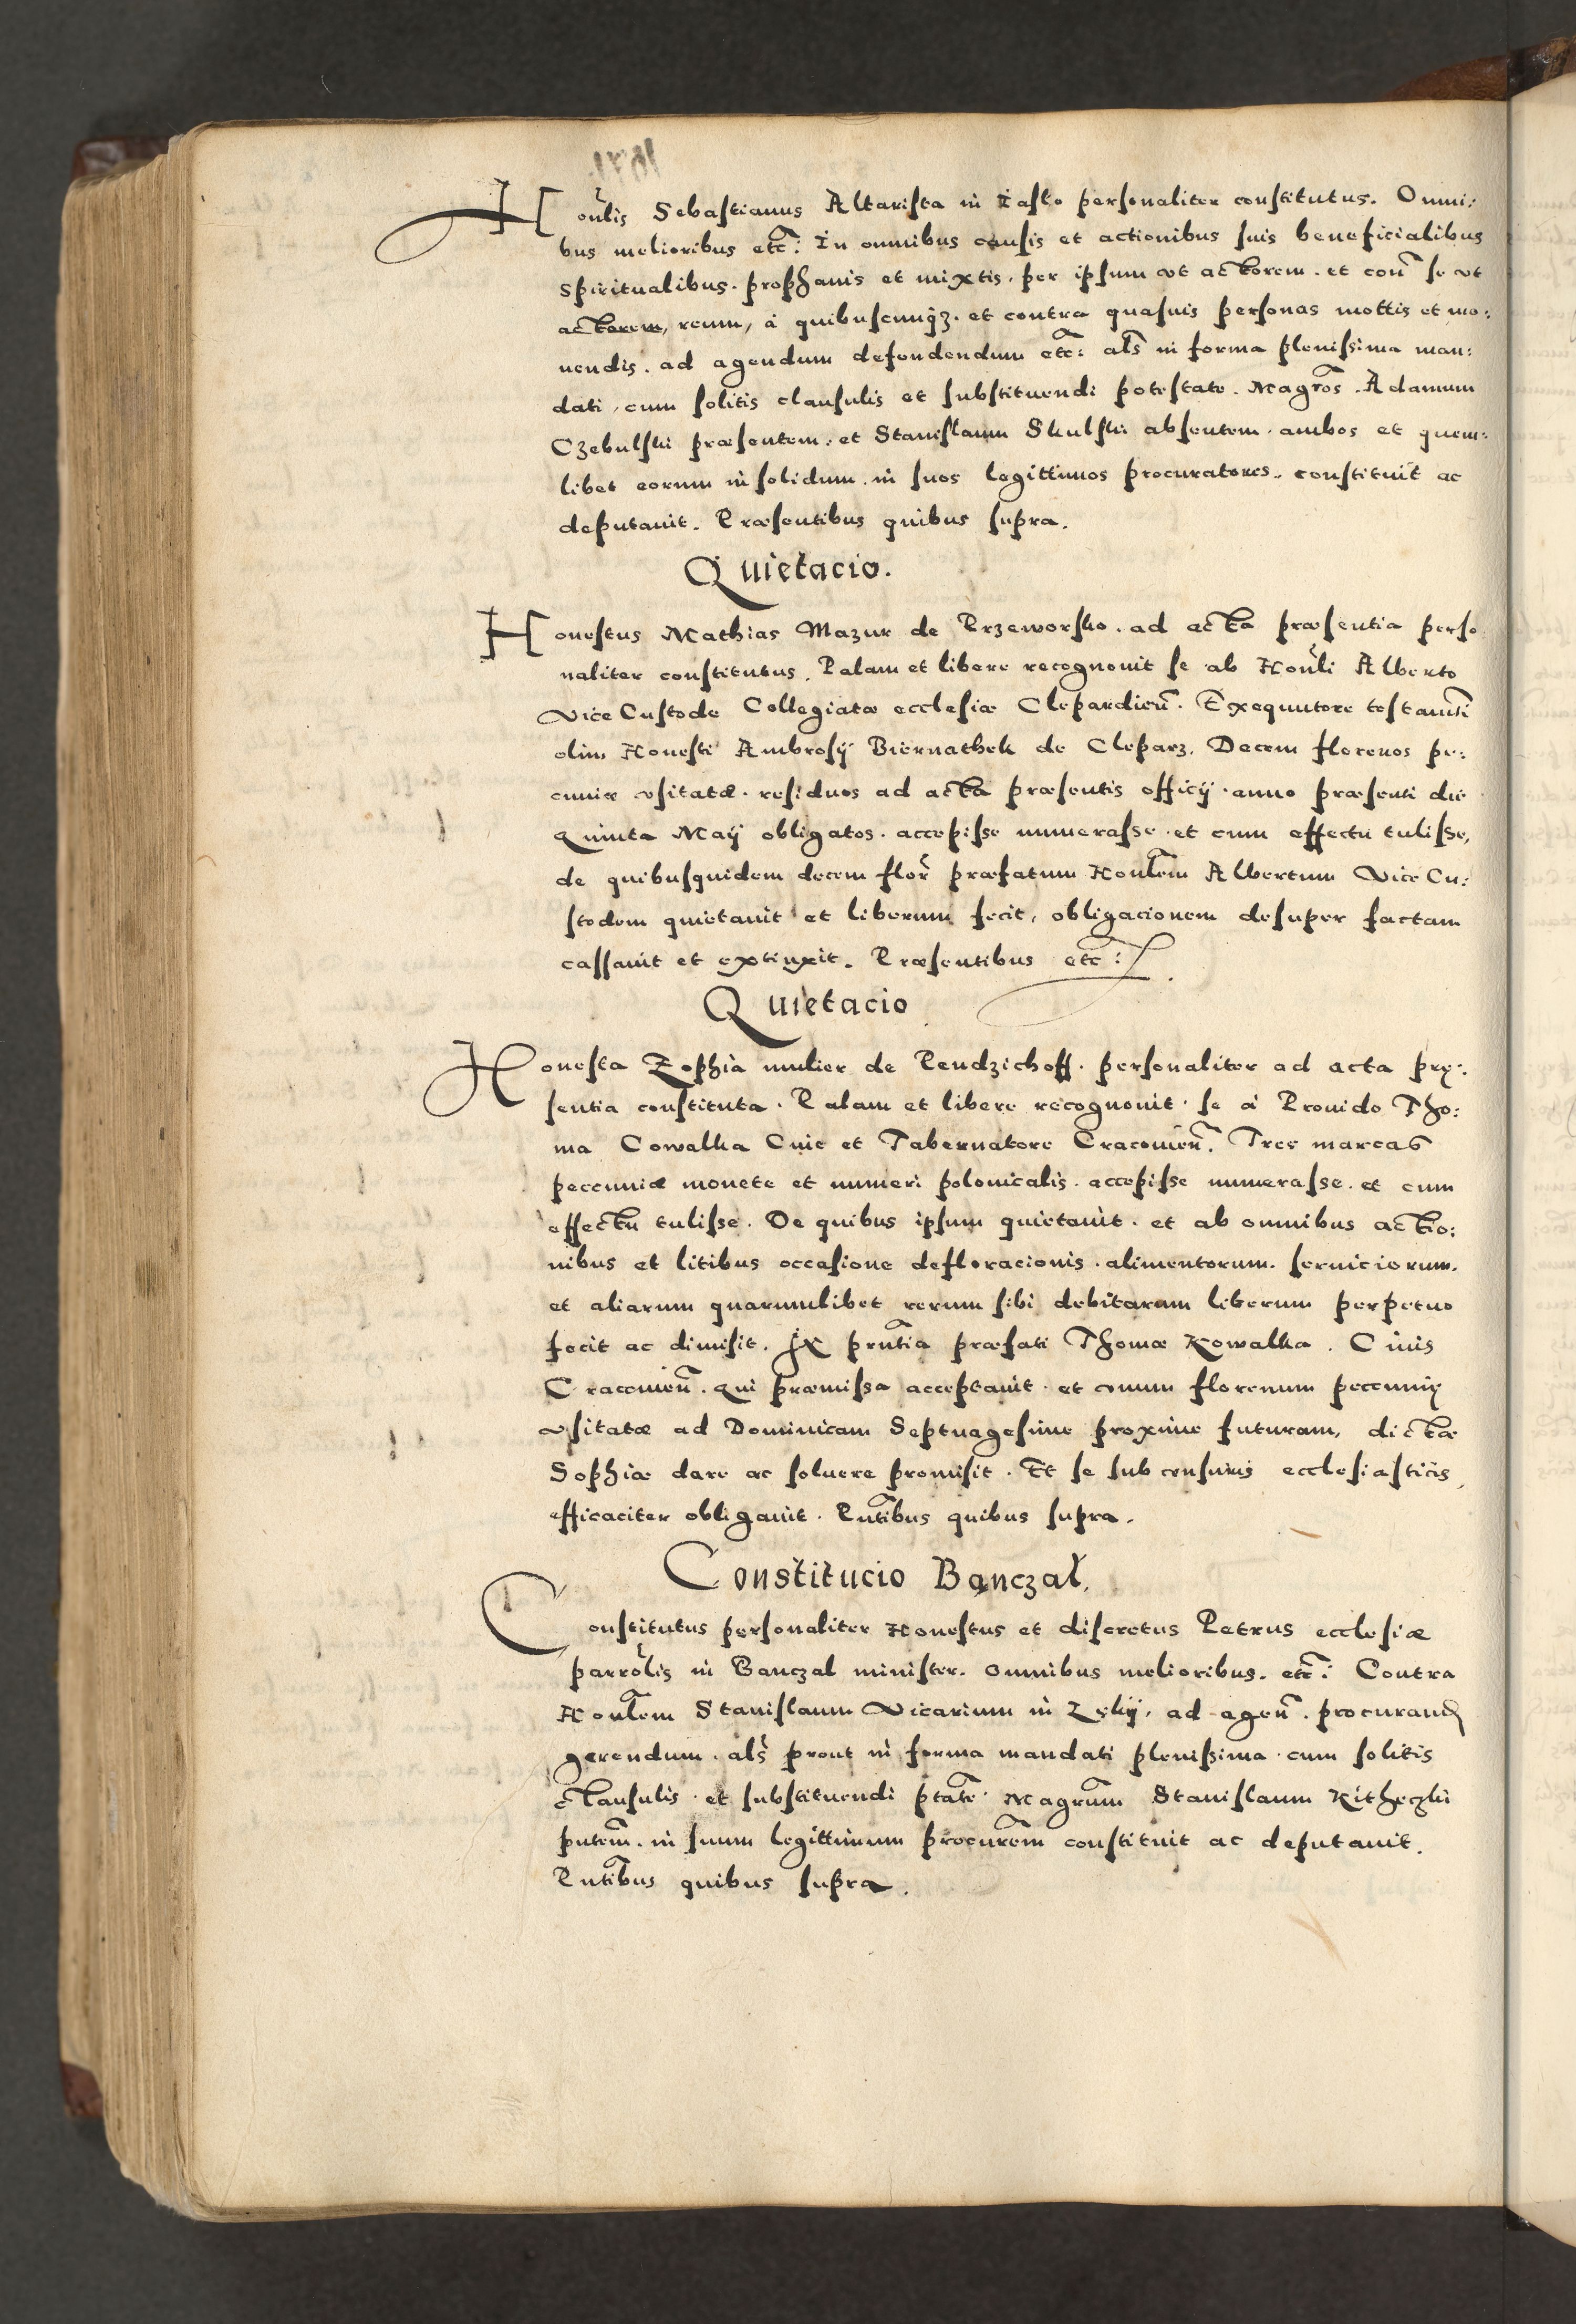 Honlis Sebastianus Altarista in Iaslo personaliter constitutus. Omni:
bus melioribus etc: In omnibus causis et actionibus suis beneficialibus
Spiritualibus. prophanis et mixtis. per ipsum vt actorem. et con se vt
actorem, reum, à quibuscunqz. et contra quasuis personas mottis et mo:
uendis. ad agendum defendendum etc: als in forma plenissima man:
dati, cum solitis clausulis et substituendi potestate. Magros. Adamum
Czebulski præsentem. et Stanislaum Skulski absentem. ambos et quem:
libet eorum in solidum. in suos legittimos procuratores. constituit ac
deputauit. Præsentibus quibus supra.
Quietacio.
Honestus Mathias Mazur de Przeworsko. ad acta præsentia perso
naliter constitutus. Palam et libere recognouit se ab Honli Alberto
Vice Custode Collegiatæ ecclesiæ Clepardien. Exequutore testamti
olim Honesti Ambrosÿ Biernathek de Cleparz. Decem florenos pe:
cuniæ vsitatæ. residuos ad acta præsentis officÿ. anno præsenti die
quinta Maÿ obligatos. accepisse numerasse. et cum effectu tulisse,
de quibusquidem decem flor præfatum Honlem Albertum Vice Cu:
stodem quietauit et liberum fecit, obligacionem desuper factam
cassauit et extinxit. Præsentibus etc:
Quietacio
Honesta Zophia mulier de Pendzichoff. personaliter ad acta prę:
sentia constituta. Palam et libere recognouit. se à Prouido Tho:
ma Cowalka Ciue et Tabernatore Cracouien. Tres marcas
peccuniæ monete et numeri polonicalis. accepisse numerasse. et cum
effectu tulisse. De quibus ipsum quietauit. et ab omnibus actio:
nibus et litibus occasione defloracionis. alimentorum. seruiciorum.
et aliarum quarumlibet rerum sibi debitarum liberum perpetuo
fecit ac dimisit. In pntia præfati Thomæ Kowalka. Ciuis
Cracouien. qui præmissa acceptauit. et vnum florenum peccunię
vsitatæ ad Dominicam Septuagesime proxime futuram, dictæ
Sophiæ dare ac soluere promisit. Et se sub censuris ecclesiasticis,
efficaciter obligauit. Pntibus quibus supra.
Constitucio Banczal,
Constitutus personaliter Honestus et discretus Petrus ecclesiæ
parrolis in Banczal minister. omnibus melioribus. etc: Contra
Honlem Stanislaum Vicarium in, ad agen. procurand
gerendum. als prout in forma mandati plenissima. cum solitis
clausulis. et substituendi ptate. Magrum Stanislaum
pntem. in suum legittimum procurem constituit ac deputauit.
Pntibus quibus supra.